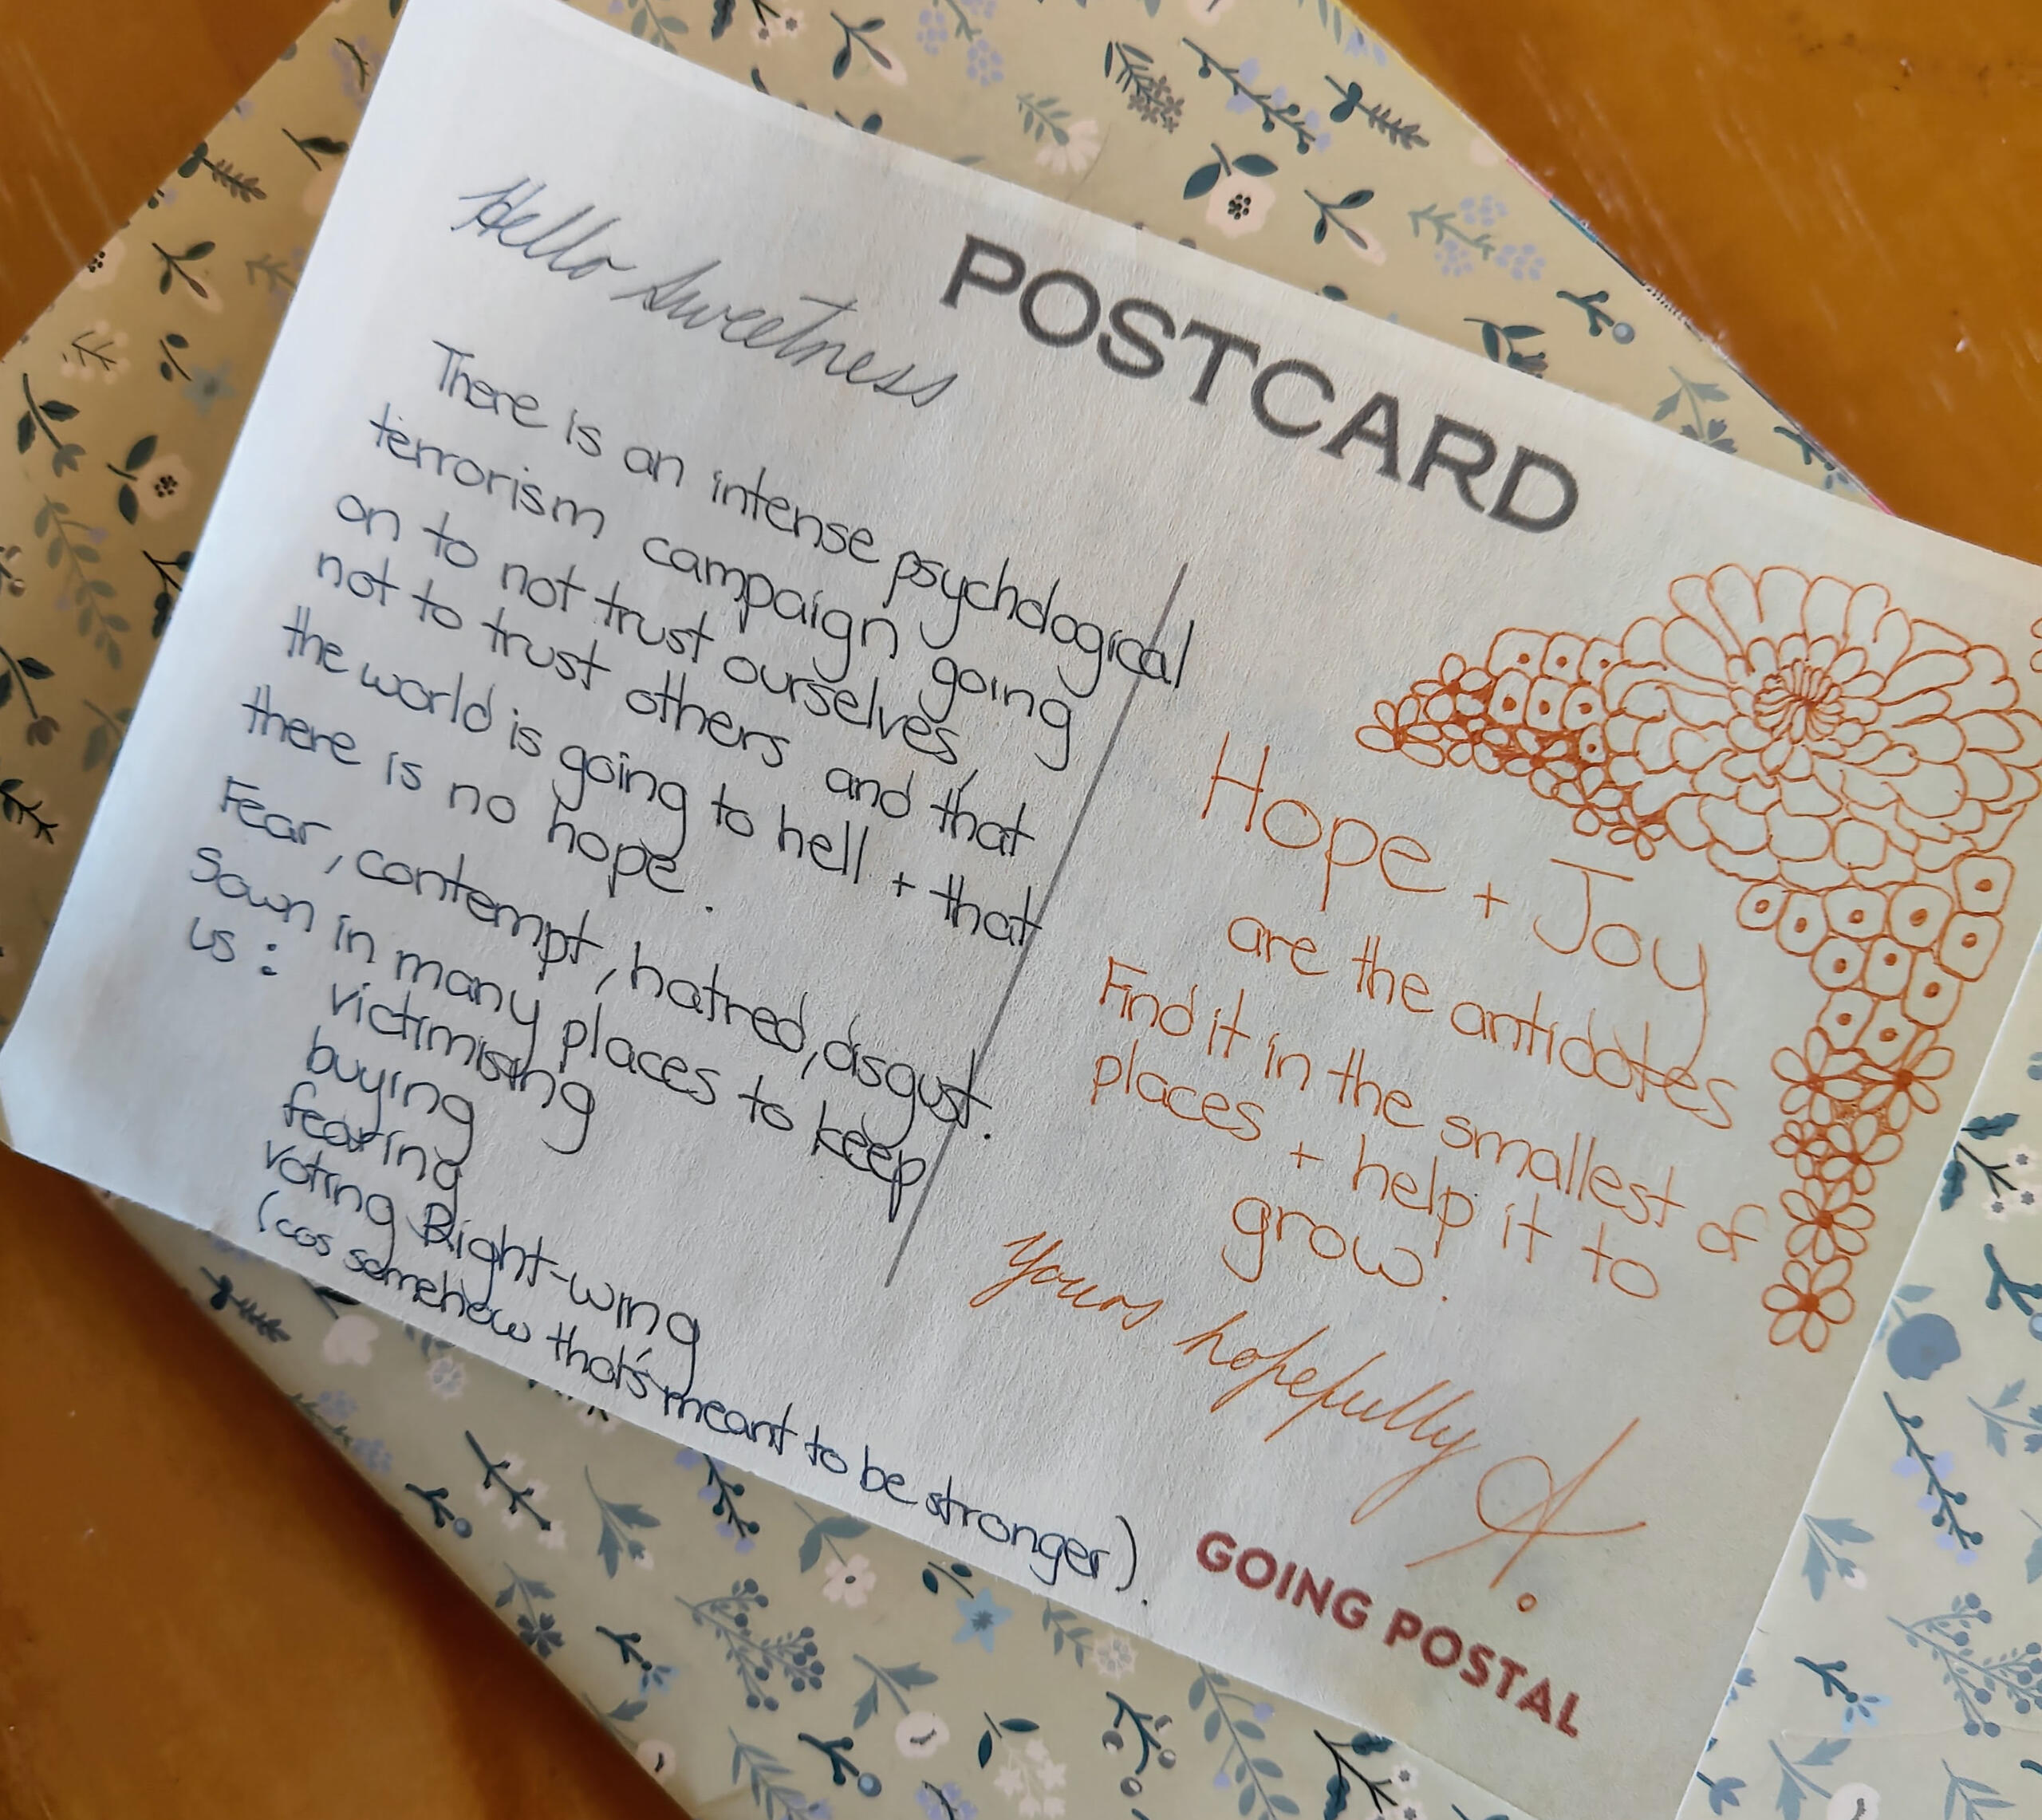 POSTCARD
Hello Sweetness
There is an intense psychological
terrorism campaign going
on to not trust ourselves,
not to trust others and that
the world is going to hell + that
there is no hope.
Fear, contempt, hatred, disgust.
Sown in many places to keep
us:
victimising
buying
fearing
voting Right-wing
(cos somehow that's meant to be stronger).
Hope + Joy
are the antidotes
Find it in the smallest of
places + help it to
grow.
Yours hopefully
A.
GOING POSTAL